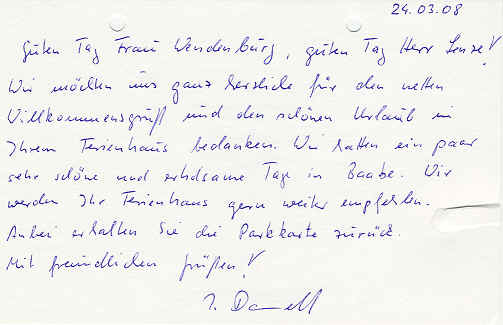 24.03.08
Guten Tag Frau Wendenburg, guten Tag Herr Lenze!
Wir möchten uns ganz herzlich für den netten
Willkommensgruß und den schönen Urlaub in
Ihrem Ferienhaus bedanken. Wir hatten ein paar
sehr schöne und erholsame Tage in Baabe. Wir
werden Ihr Ferienhaus gern weiter empfehlen.
Anbei erhalten Sie die Parkkarte zurück.
Mit freundlichen Grüßen!